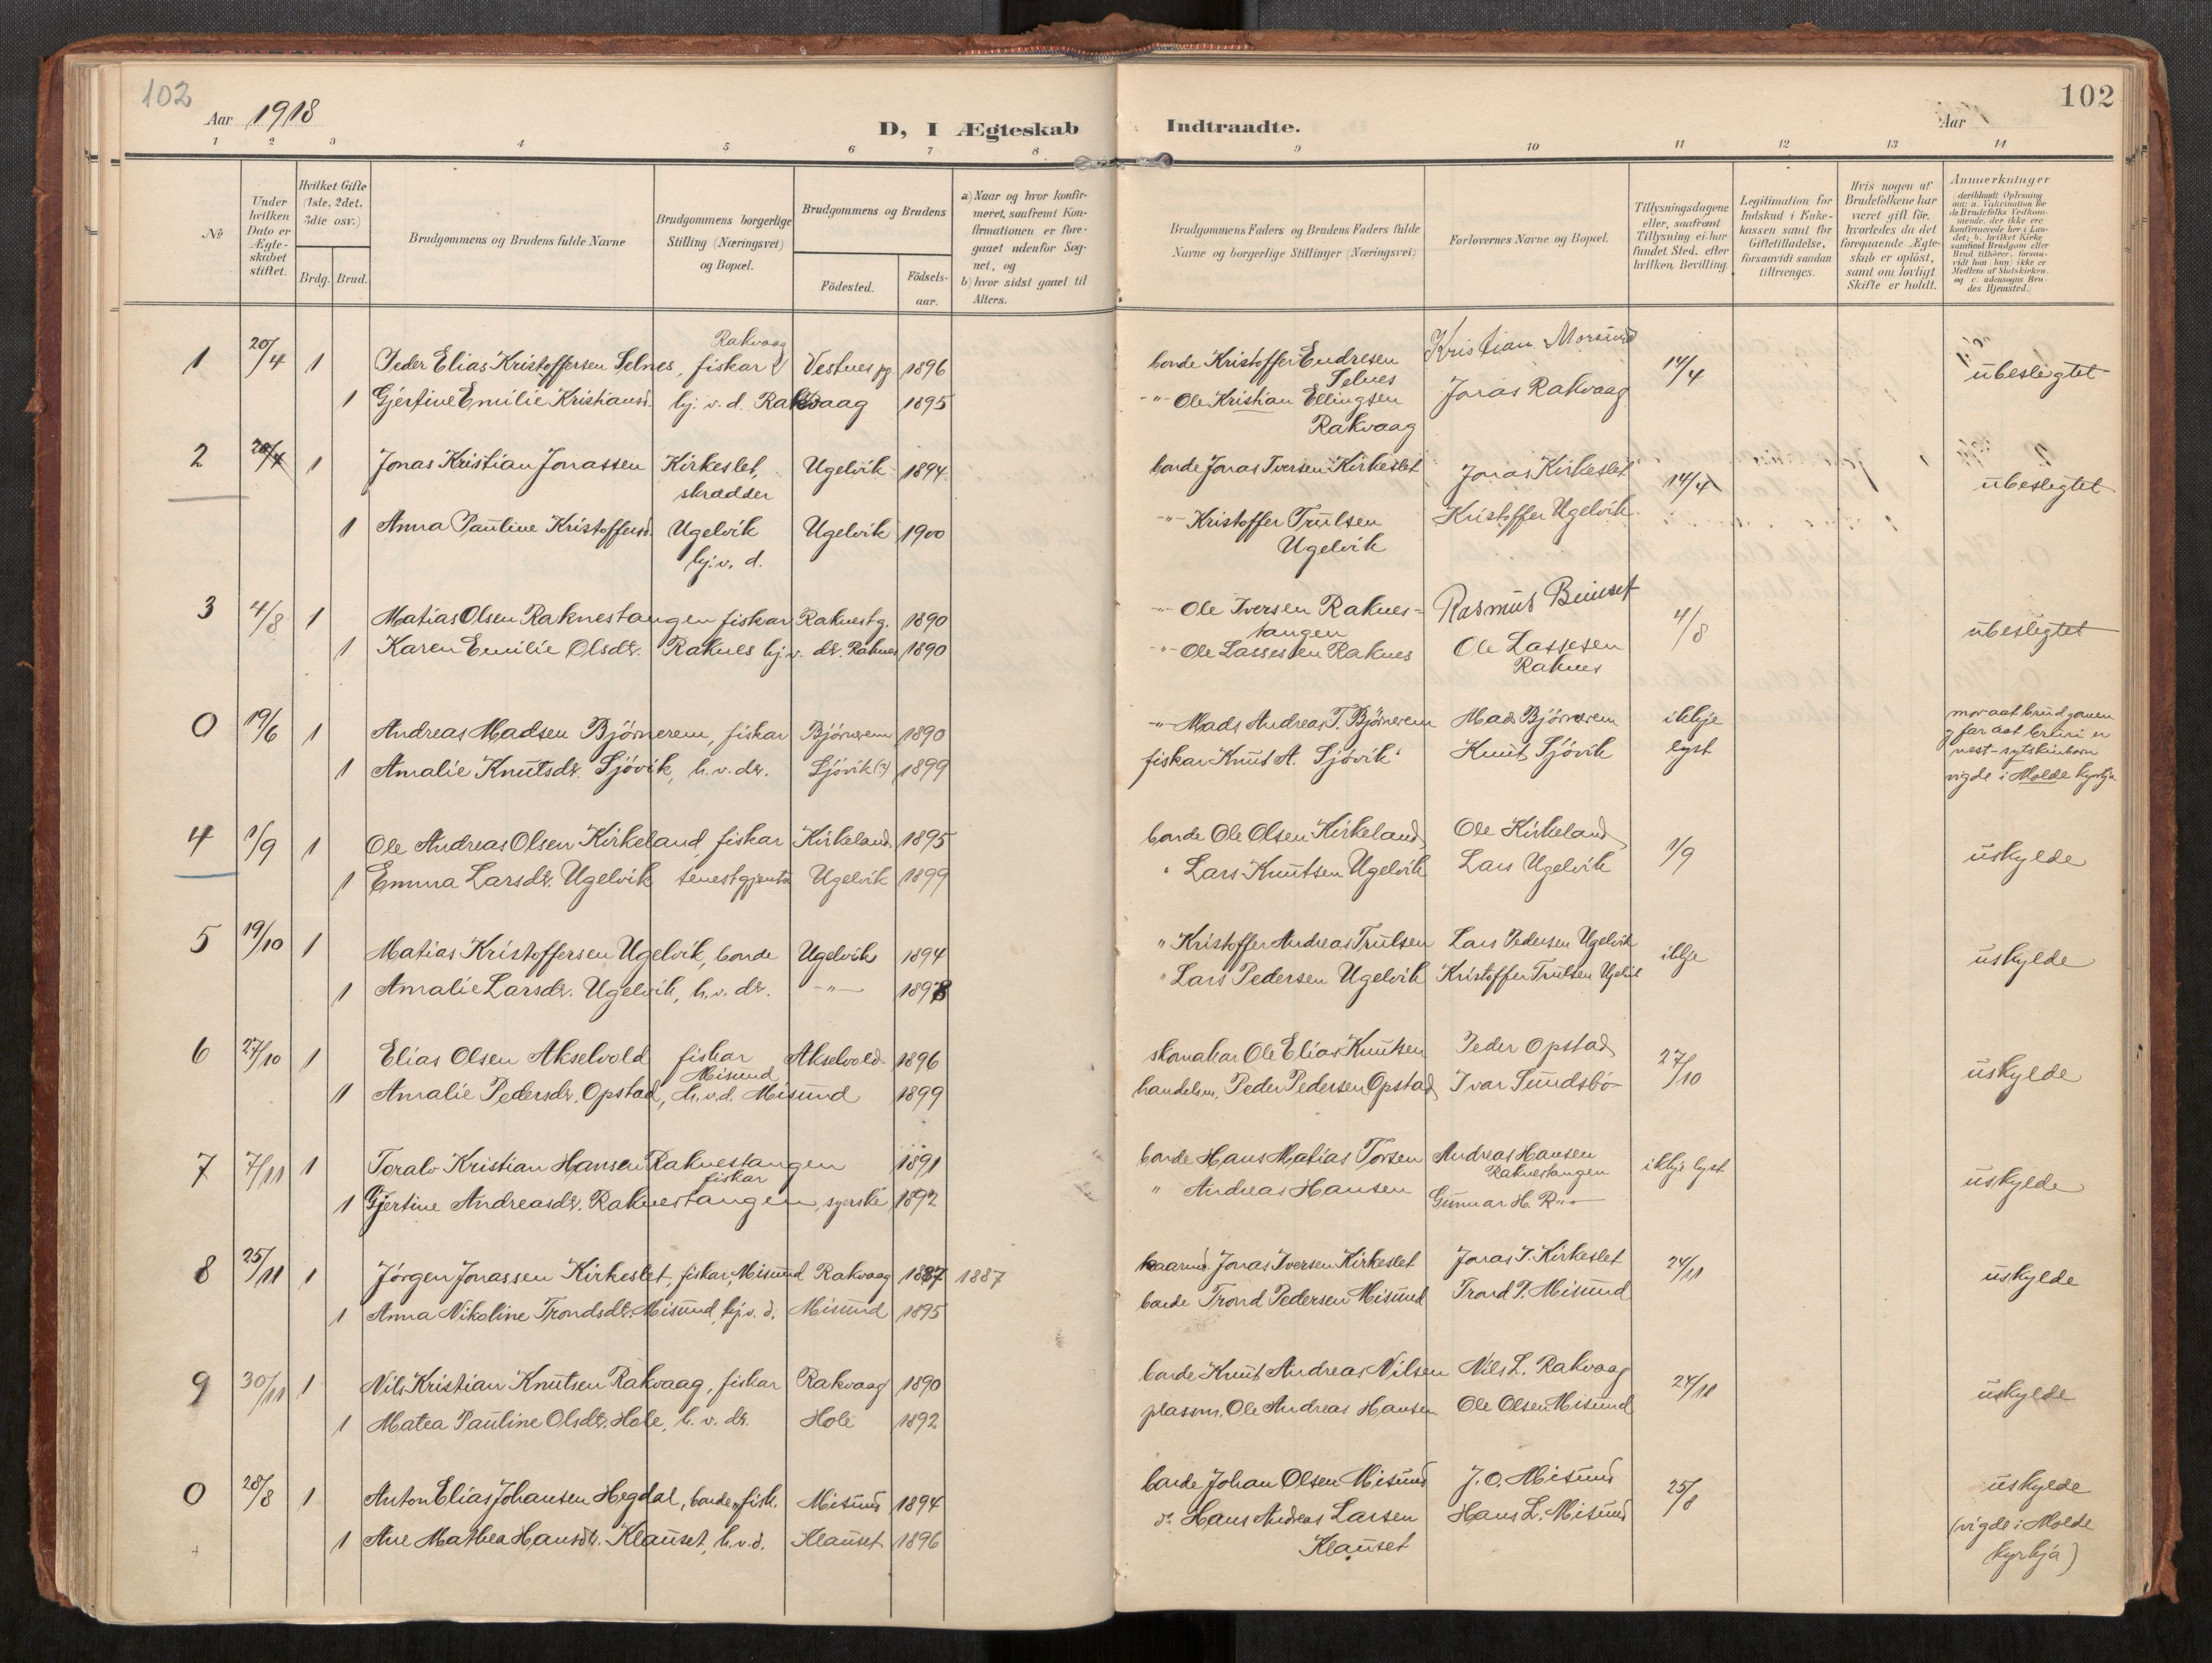 102
Aar 1918
D, I Ægteskab
Indtraadte.
Aar
102
1 2 3 4 5 6 7 8 9 10 11 12 13 14
No
Under hvilken Dato er Ægteskabet stiftet.
Hvilket Gifte (1ste, 2det, 3die osv.)
Brdg. Brud.
Brudgommens og Brudens fulde Navne
Brudgommens borgerlige Stilling (Næringsvei) og Bopæl.
Brudgommens og Brudens
Födested.
Födselsaar.
a) Naar og hvor konfirmeret, saafremt Konfirmationen er foregaaet udenfor Sognet, og
b) hvor sidst gaaet til Alters.
Brudgommens Faders og Brudens Faders fulde Navne og borgerlige Stillinger (Næringsvei)
Forlovernes Navne og Bopæl.
Tillysningsdagene eller, saafremt Tillysning ei har fundet Sted, efter hvilken Bevilling.
Legitimation for Indskud i Enkekassen samt for Giftetilladelse, forsaavidt saadan tiltrænges.
Hvis nogen af Brudefolkene har været gift för, hvorledes da det foregaaende Ægteskab er oplöst, samt om lovligt Skifte er holdt.
Anmerkninger (deriblandt Oplysning om: a. Vakcination for de Brudefolks Vedkommende, der ikke ere konfirmerede her i Landet; b. hvilket Kirkesamfund Brudgom eller Brud tilhörer, forsaavidt han (hun) ikke er Medlem af Statskirken, og c. udensogns Brudes Hjemsted.)
1 20/4 1 Peder Elias Kristoffersen Selnes, fiskar Rakvaag Vestnes pg. 1896 bonde Kristoffer Endresen Selnes Kristian Morsund 14/4 ubeslegtet
1 Gjertine Emilie Kristiansd. hj. v. d. Rakvaag 1895 -"- Ole Kristian Ellingsen Rakvaag Jonas Rakvaag
2 20/4 1 Jonas Kristian Jonassen Kirkeslet, skrædder Ugelvik 1894 bonde Jonas Iversen Kirkeslet Jonas Kirkeslet 14/4 ubeslegtet
1 Anna Pauline Kristoffersd. Ugelvik hj. v. d. Ugelvik 1900 -"- Kristoffer Trulsen Ugelvik Kristoffer Ugelvik
3 4/8 1 Matias Olsen Raknestangen fiskar Raknestg. 1890 -"- Ole Iversen Raknestangen Rasmus 4/8 ubeslegtet
1 Karen Emilie Olsdtr. Raknes hj. v. dr. Raknes 1890 -"- Ole Lassessen Raknes Ole Lassesen Raknes
0 19/6 1 Andreas Madsen Björnerem, fiskar Björnerem 1890 -"- Mads Andreas T. Björnerem Mads Björnerem ikkje lyst mor aat brudgomen og far aat bruri er nest-syskinborn vigde i Molde kyrkja
1 Amalie Knutsdr. Sjövik, h. v. dr. Sjövik (?) 1899 fiskar Knut A. Sjövik Knut Sjövik
4 1/9 1 Ole Andreas Olsen Kirkeland fiskar Kirkeland 1895 bonde Ole Olsen Kirkeland Ole Kirkeland 1/9 uskylde
1 Emma Larsdr. Ugelvik tenestgjenta Ugelvik 1899 " Lars Knutsen Ugelvik Lars Ugelvik
5 19/10 1 Matias Kristoffersen Ugelvik, bonde Ugelvik 1894 " Kristoffer Andreas Trulsen Lars Pedersen Ugelvik ikkje uskylde
1 Amalie Larsdr. Ugelvik, h. v. dr. -"- 1898 " Lars Pedersen Ugelvik Kristoffer Trulsen Ugelvik
6 27/10 1 Elias Olsen Akselvold fiskar Misund Akselvold 1896 skomakar Ole Elias Knutsen Peder Opstad 27/10 uskylde
1 Amalie Pedersdr. Opstad, h. v. d. Misund 1899 handelsm. Peder Pedersen Opstad Ivar Sundsbö
7 7/11 1 Toralv Kristian Hansen Raknestangen fiskar 1891 bonde Hans Matias Torsen Andreas Hansen Raknestangen ikkje lyst uskylde
1 Gjertine Andreasdr. Raknestangen, syerske 1892 " Andreas Hansen Gunnar H. R-"-
8 25/11 1 Jörgen Jonassen Kirkeslet, fiskar, Misund Rakvaag 1887 1887 kaarm. Jonas Iversen Kirkeslet Jonas I. Kirkeslet 24/11 uskylde
1 Anna Nikoline Trondsdtr. Misund, hj. v. d. Misund 1895 bonde Trond Pedersen Misund Trond P. Misund
9 30/11 1 Nils Kristian Knutsen Rakvaag, fiskar Rakvaag 1890 bonde Knut Andreas Nilsen Nils L. Rakvaag 24/11 uskylde
1 Matea Pauline Olsdtr. Hole, h. v. dr. Hole 1892 plassm. Ole Andreas Hansen Ole Olsen Misund
0 28/8 1 Anton Elias Johansen Hegdal, bonde, fisk. Misund 1894 bonde Johan Olsen Misund J. O. Misund 25/8 uskylde (vigde i Molde kyrkja)
1 Ane Mathea Hansdtr. Klauset, h. v. d. Klauset 1896 do Hans Andreas Larsen Klauset Hans L. Misund